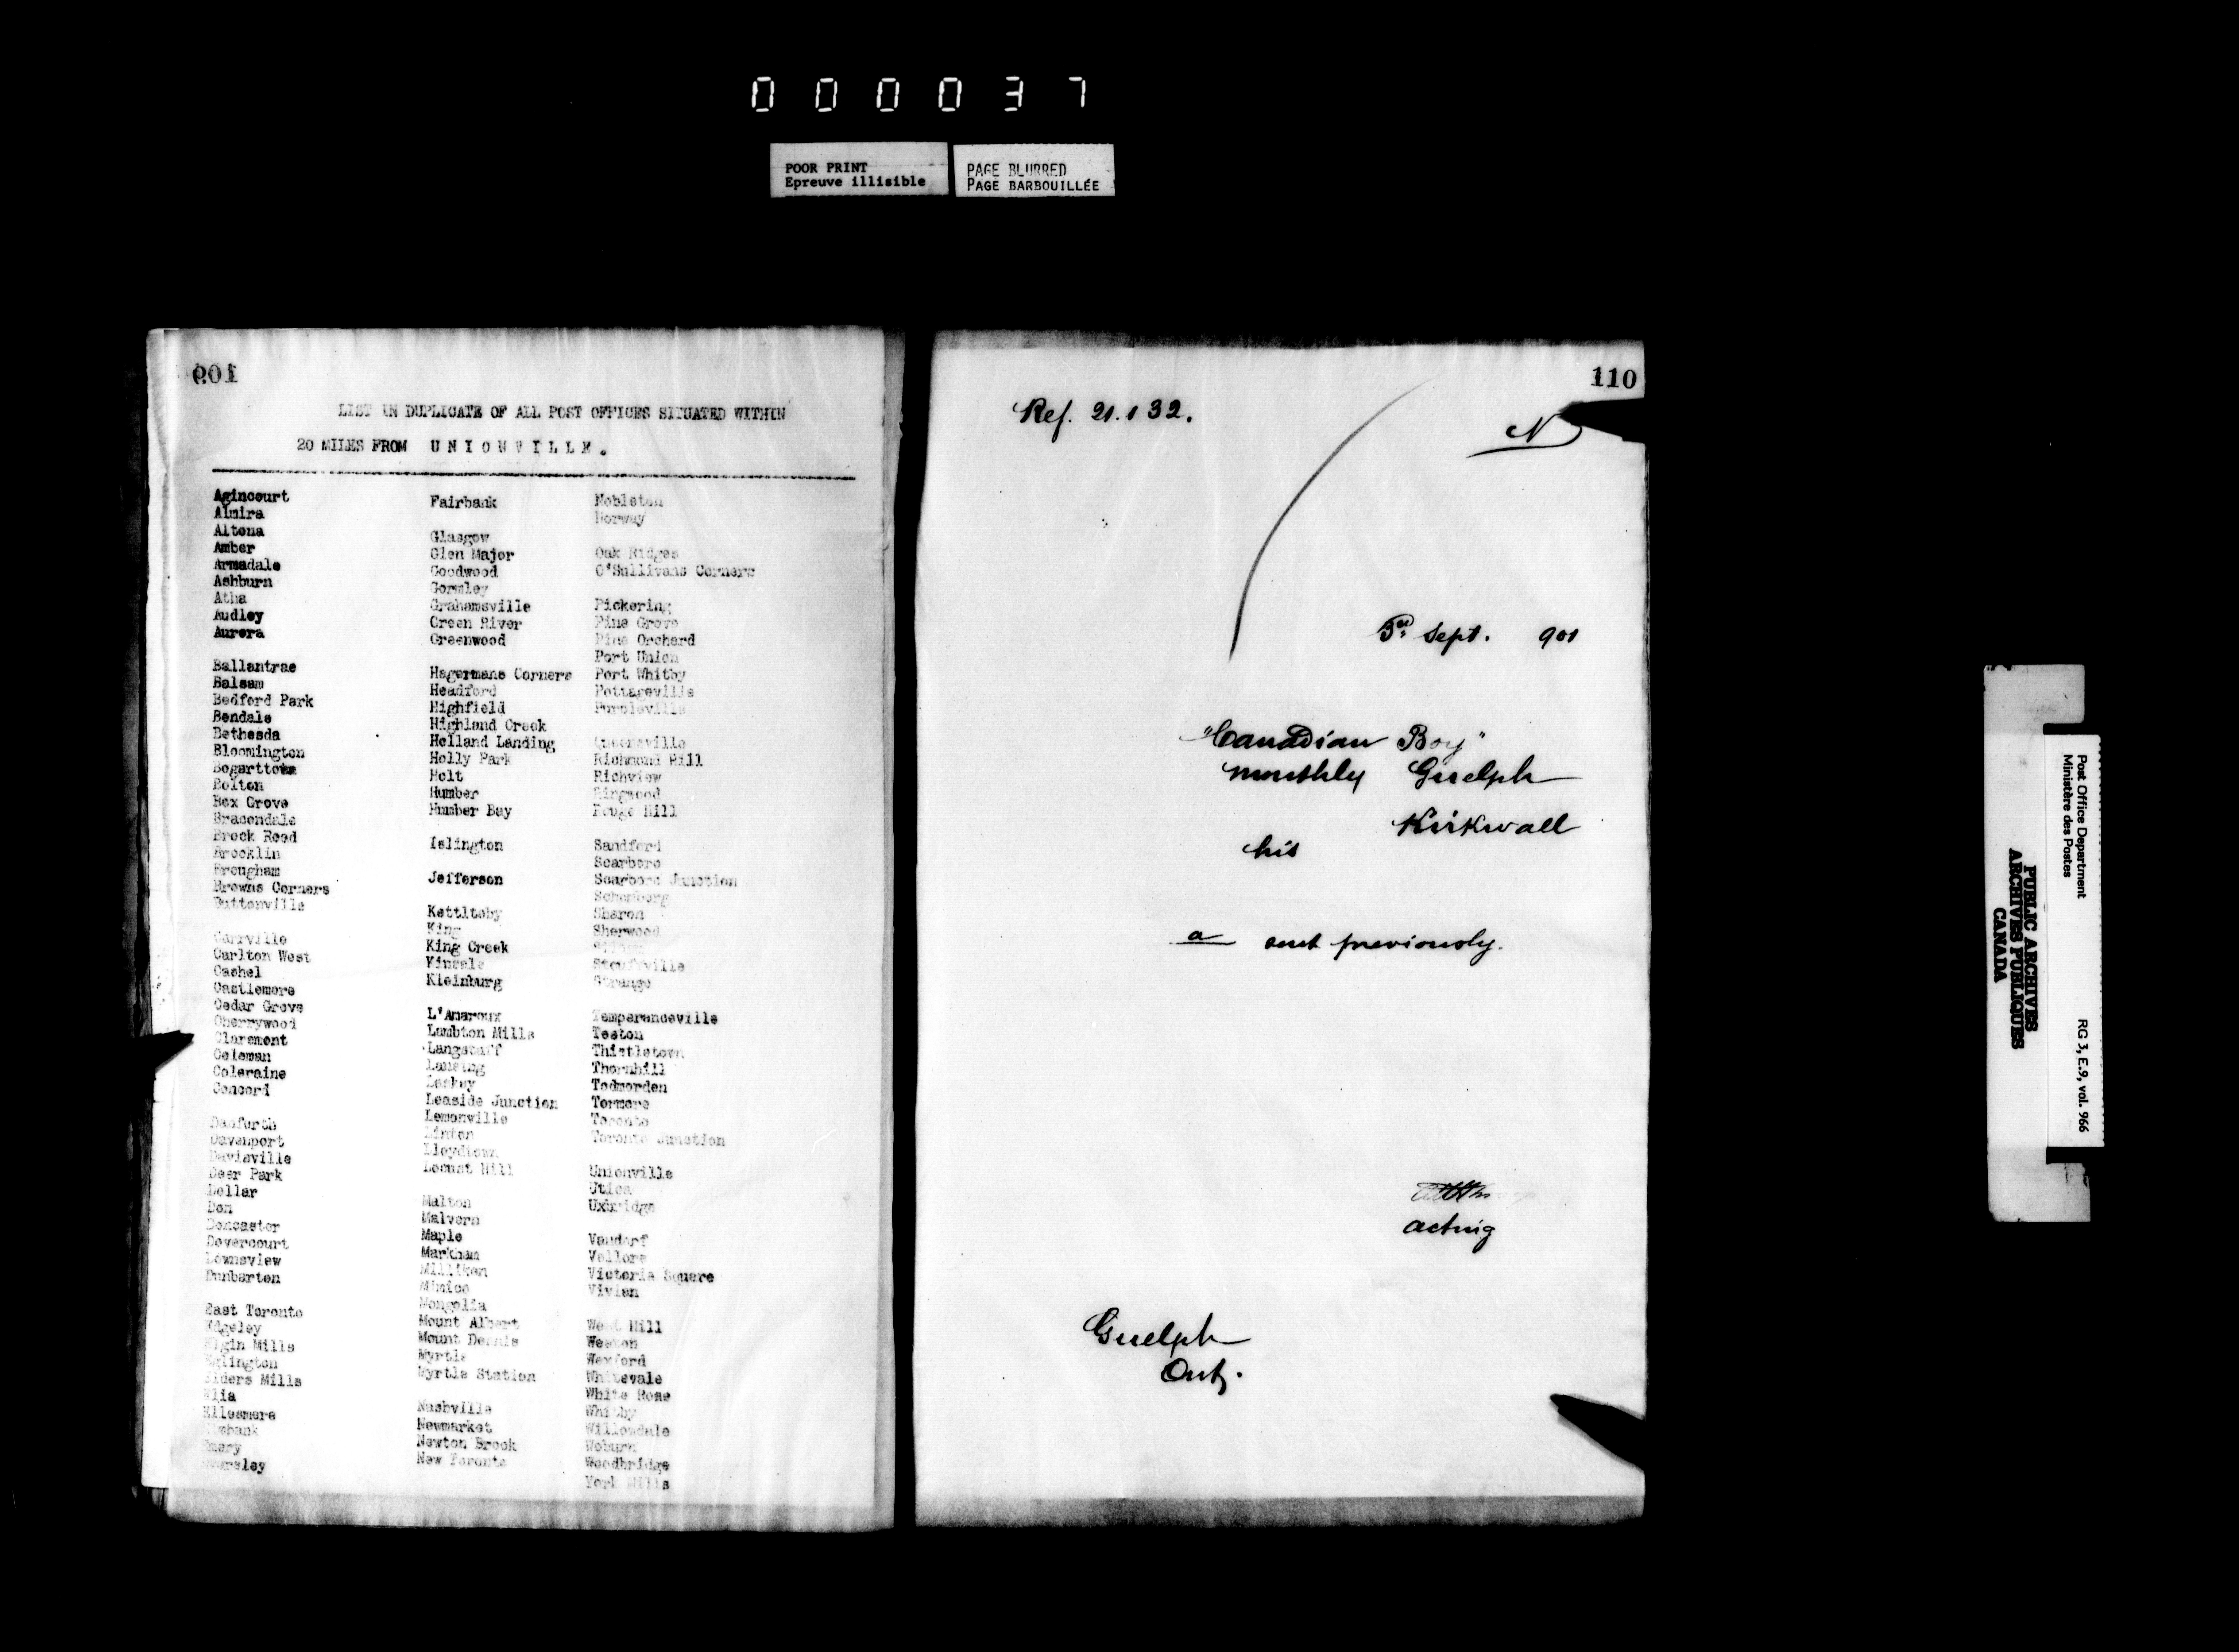 000037
POOR PRINT
Epreuve illisible
PAGE BLURRED
PAGE BARBOUILLÉE
109
LIST IN DUPLICATE OF ALL POST OFFICES SITUATED WITHIN
20 MILES FROM UNIONVILLE.
Agincourt
Almira
Altona
Amber
Armadale
Ashburn
Atha
Audley
Aurora
Ballantrae
Balsam
Bedford Park
Bendale
Bethesda
Bloomington
Bogarttown
Bolton
Box Grove
Bracondale
Brock Road
Brooklin
Brougham
Browns Corners
Buttonville
Carrville
Carlton West
Cashel
Castlemore
Cedar Grove
Cherrywood
Claremont
Coleman
Coleraine
Concord
Danforth
Davenport
Davisville
Deer Park
Dollar
Don
Doncaster
Dovercourt
Downsview
Dunbarton
East Toronto
Edgeley
Elgin Mills
Eglington
Elders Mills
Elia
Ellesmere
Emery
Fairbank
Glasgow
Glen Major
Goodwood
Gormley
Grahamsville
Green River
Greenwood
Hagermans Corners
Headford
Highfield
Highland Creek
Holland Landing
Holly Park
Holt
Humber
Humber Bay
Islington
Jefferson
Kettleby
King
King Creek
Kinsale
Kleinburg
L'Amaroux
Lambton Mills
Langstaff
Lansing
Laskay
Leaside Junction
Lemonville
Linton
Lloydtown
Locust Hill
Malton
Malvern
Maple
Markham
Milliken
Mimico
Mongolia
Mount Albert
Mount Dennis
Myrtle
Myrtle Station
Nashville
Newmarket
Newton Brook
New Toronto
Nobleton
Norway
Oak Ridges
O'Sullivans Corners
Pickering
Pine Grove
Pine Orchard
Port Union
Port Whitby
Pottageville
Purpleville
Queensville
Richmond Hill
Richview
Ringwood
Rouge Hill
Sandford
Scarboro
Scarboro Junction
Schomberg
Sharon
Sherwood
Stouffville
Strange
Temperanceville
Teston
Thistletown
Thornhill
Todmorden
Tormore
Toronto
Toronto Junction
Unionville
Utica
Uxbridge
Vandorf
Vellore
Victoria Square
Vivian
West Hill
Weston
Wexford
Whitevale
White Rose
Whitby
Willowdale
Woburn
Woodbridge
York Mills
110
Ref. 21.132.
N
3rd Sept. 901
"Canadian Boy"
monthly Guelph
Kirkwall
his
a sent previously.
acting
Guelph
Ont.
Post Office Department
Ministère des Postes
RG 3, E.9, vol. 966
PUBLIC ARCHIVES
ARCHIVES PUBLIQUES
CANADA